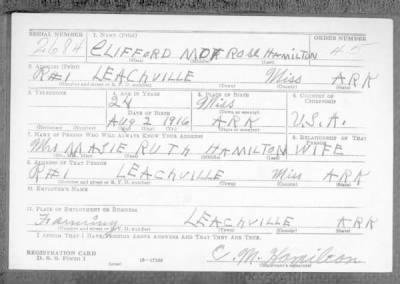 SERIAL NUMBER 1. NAME (Print) ORDER NUMBER
2684 CLIFFORD ROSE HAMILTON 45
(First) (Middle) (Last)
2. ADDRESS (Print)
R#1 LEACHVILLE Miss ARK
(Number and street or R. F. D. number) (Town) (County) (State)
3. TELEPHONE 4. AGE IN YEARS 5. PLACE OF BIRTH 6. COUNTRY OF CITIZENSHIP
24 Miss
DATE OF BIRTH (Town or county)
AUG 2 1916 ARK U.S.A.
(Exchange) (Number) (Mo.) (Day) (Yr.) (State or country)
7. NAME OF PERSON WHO WILL ALWAYS KNOW YOUR ADDRESS 8. RELATIONSHIP OF THAT PERSON
Mrs MASIE RUTH HAMILTON WIFE
(Mr., Mrs., Miss) (First) (Middle) (Last)
9. ADDRESS OF THAT PERSON
R#1 LEACHVILLE Miss ARK
(Number and street or R. F. D. number) (Town) (County) (State)
10. EMPLOYER'S NAME
11. PLACE OF EMPLOYMENT OR BUSINESS
Farming LEACHVILLE ARK
(Number and street or R. F. D. number) (Town) (County) (State)
I AFFIRM THAT I HAVE VERIFIED ABOVE ANSWERS AND THAT THEY ARE TRUE.
REGISTRATION CARD
D. S. S. Form 1 (over) 16-17105 C. M. Hamilton
(Registrant's signature)